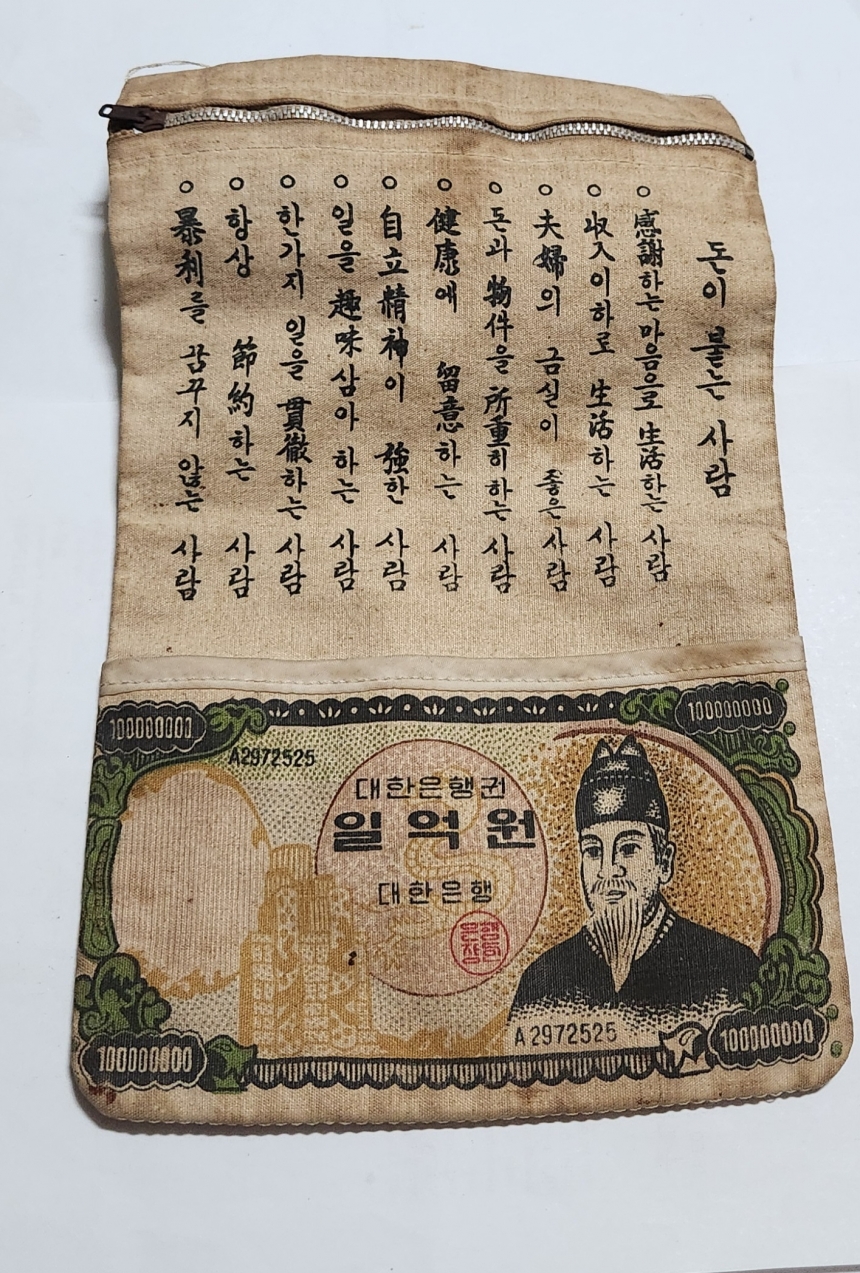 돈이 붙는 사람
○ 感謝하는 마음으로 生活하는 사람
○ 収入이하로 生活하는 사람
○ 夫婦의 금실이 좋은 사람
○ 돈과 物件을 所重히하는 사람
○ 健康에 留意하는 사람
○ 自立精神이 強한 사람
○ 일을 趣味삼아 하는 사람
○ 한가지 일을 貫徹하는 사람
○ 항상 節約하는 사람
○ 暴利를 꿈꾸지 않는 사람
100000000
100000000
A2972525
대한은행권
일억원
대한은행
A2972525
100000000
100000000